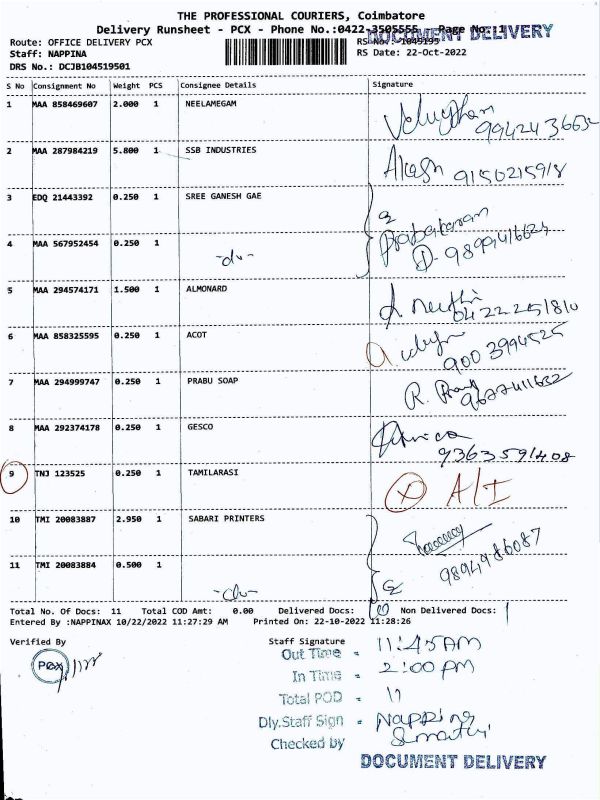 THE PROFESSIONAL COURIERS, Coimbatore
Delivery Runsheet - PCX - Phone No.:0422-3505555 Page No.:1
DOCUMENT DELIVERY
Route: OFFICE DELIVERY PCX RS No.: 1045195
Staff: NAPPINA RS Date: 22-Oct-2022
DRS No.: DCJB104519501
S No Consignment No Weight PCS Consignee Details Signature
1 MAA 858469607 2.000 1 NEELAMEGAM
2 MAA 287984219 5.800 1 SSB INDUSTRIES Akash 9150215918
3 EDQ 21443392 0.250 1 SREE GANESH GAE
4 MAA 567952454 0.250 1 -do- Prabakaran
5 MAA 294574171 1.500 1 ALMONARD 0422251810
6 MAA 858325595 0.250 1 ACOT 9003994525
7 MAA 294999747 0.250 1 PRABU SOAP R. 9677411632
8 MAA 292374178 0.250 1 GESCO 9363591408
9 TNJ 123525 0.250 1 TAMILARASI X A/I
10 TMI 20083887 2.950 1 SABARI PRINTERS
11 TMI 20083884 0.500 1 -do- 9894986087
Total No. Of Docs: 11 Total COD Amt: 0.00 Delivered Docs: 10 Non Delivered Docs: 1
Entered By :NAPPINAX 10/22/2022 11:27:29 AM Printed On: 22-10-2022 11:28:26
Verified By Staff Signature
PCX
Out Time = 11:45 AM
In Time = 2:00 PM
Total POD = 11
Dly.Staff Sign = Nappina
Checked by Sumathi
DOCUMENT DELIVERY